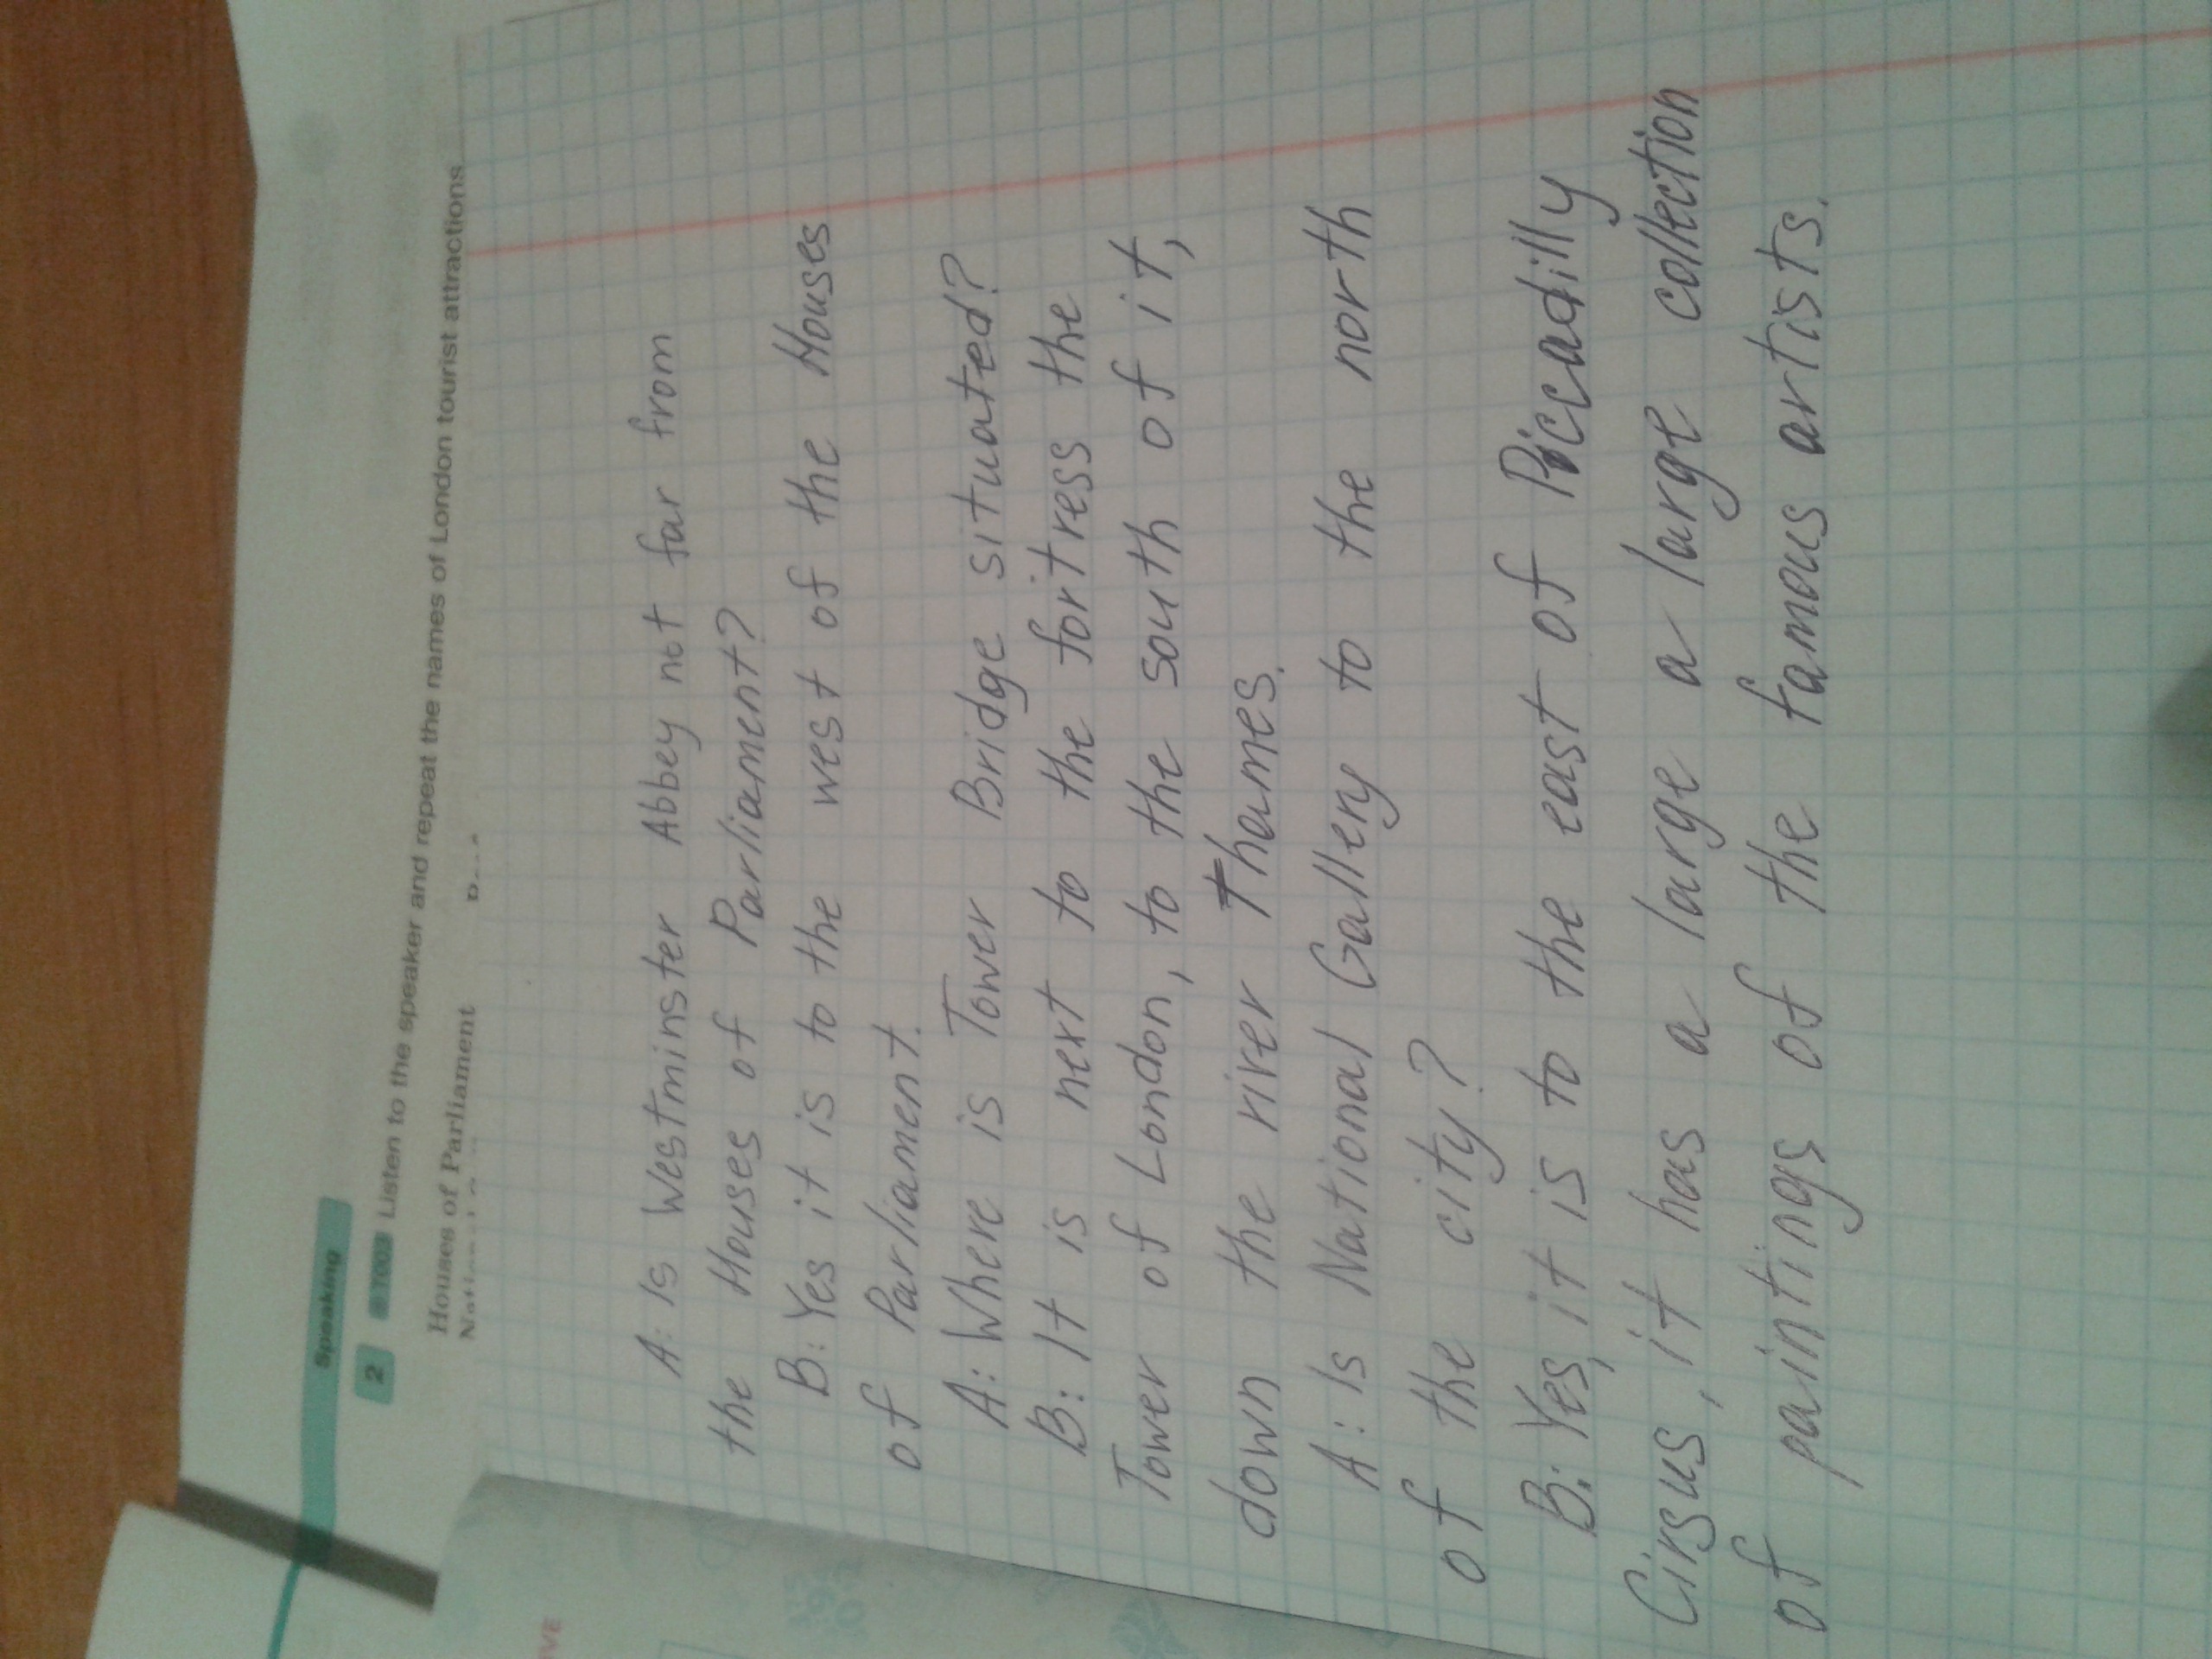 Speaking
2 Listen to the speaker and repeat the names of London tourist attractions
Houses of Parliament
A: Is Westminster Abbey not far from
the Houses of Parliament?
B: Yes it is to the west of the Houses
of Parliament.
A: Where is Tower Bridge situated?
B: It is next to the fortress the
Tower of London, to the south of it,
down the river Thames.
A: Is National Gallery to the north
of the city?
B: Yes, it is to the east of Piccadilly
Cirsus, it has a large a large collection
of paintings of the famous artists.